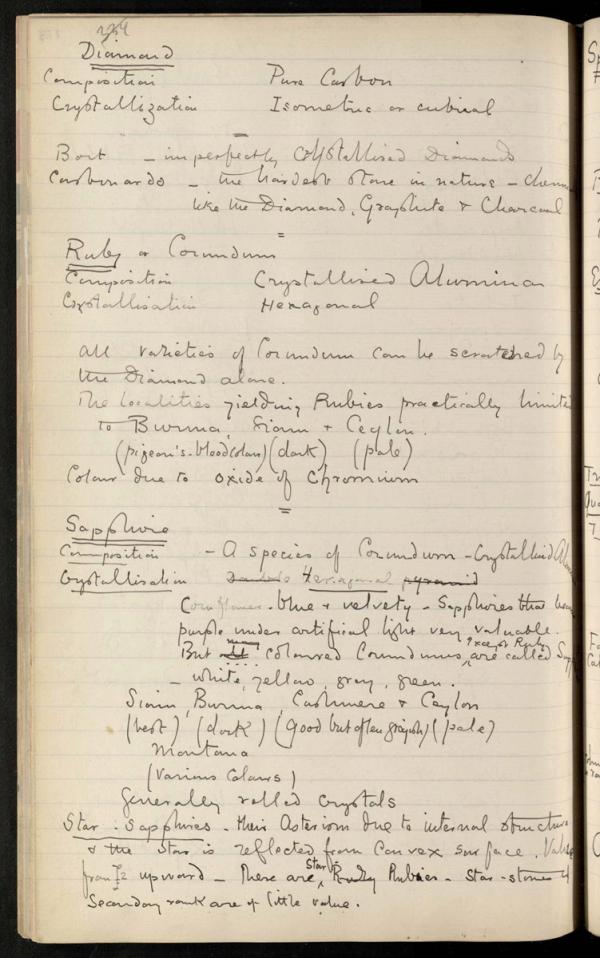 229
Diamond
Composition Pure Carbon
Crystallization Isometric or cubical
Bort - imperfectly crystallised Diamonds
Carbonardo - the hardest stone in nature - chem
like the Diamond, Graphite & Charcoal
Ruby or Corundum
Composition Crystallised Alumina
Crystallisation Hexagonal
All varieties of Corundum can be scratched by
the Diamond alone.
The localities yielding Rubies practically limited
to Burma, Siam & Ceylon.
(pigeon's-blood colour) (dark) (pale)
Colour due to oxide of Chromium
Sapphire
Composition - A species of Corundum - Crystallised Alu
Crystallisation Hexagonal pyramid
Cornflower-blue & velvety - Sapphires that
purple under artificial light very valuable.
But coloured Corundums, except Ruby are called Sap
- white, yellow, gray, green.
Siam, Burma, Cashmere & Ceylon
(best) (dark) (good but often grayish) (pale)
Montana
(various colours)
Generally rolled crystals
Star-Sapphires - their Asterism due to internal structure
& the Star is reflected from Convex surface. Value
from £2 upward - There are Star Rubies - Star-stones of
Secondary rank are of little value.